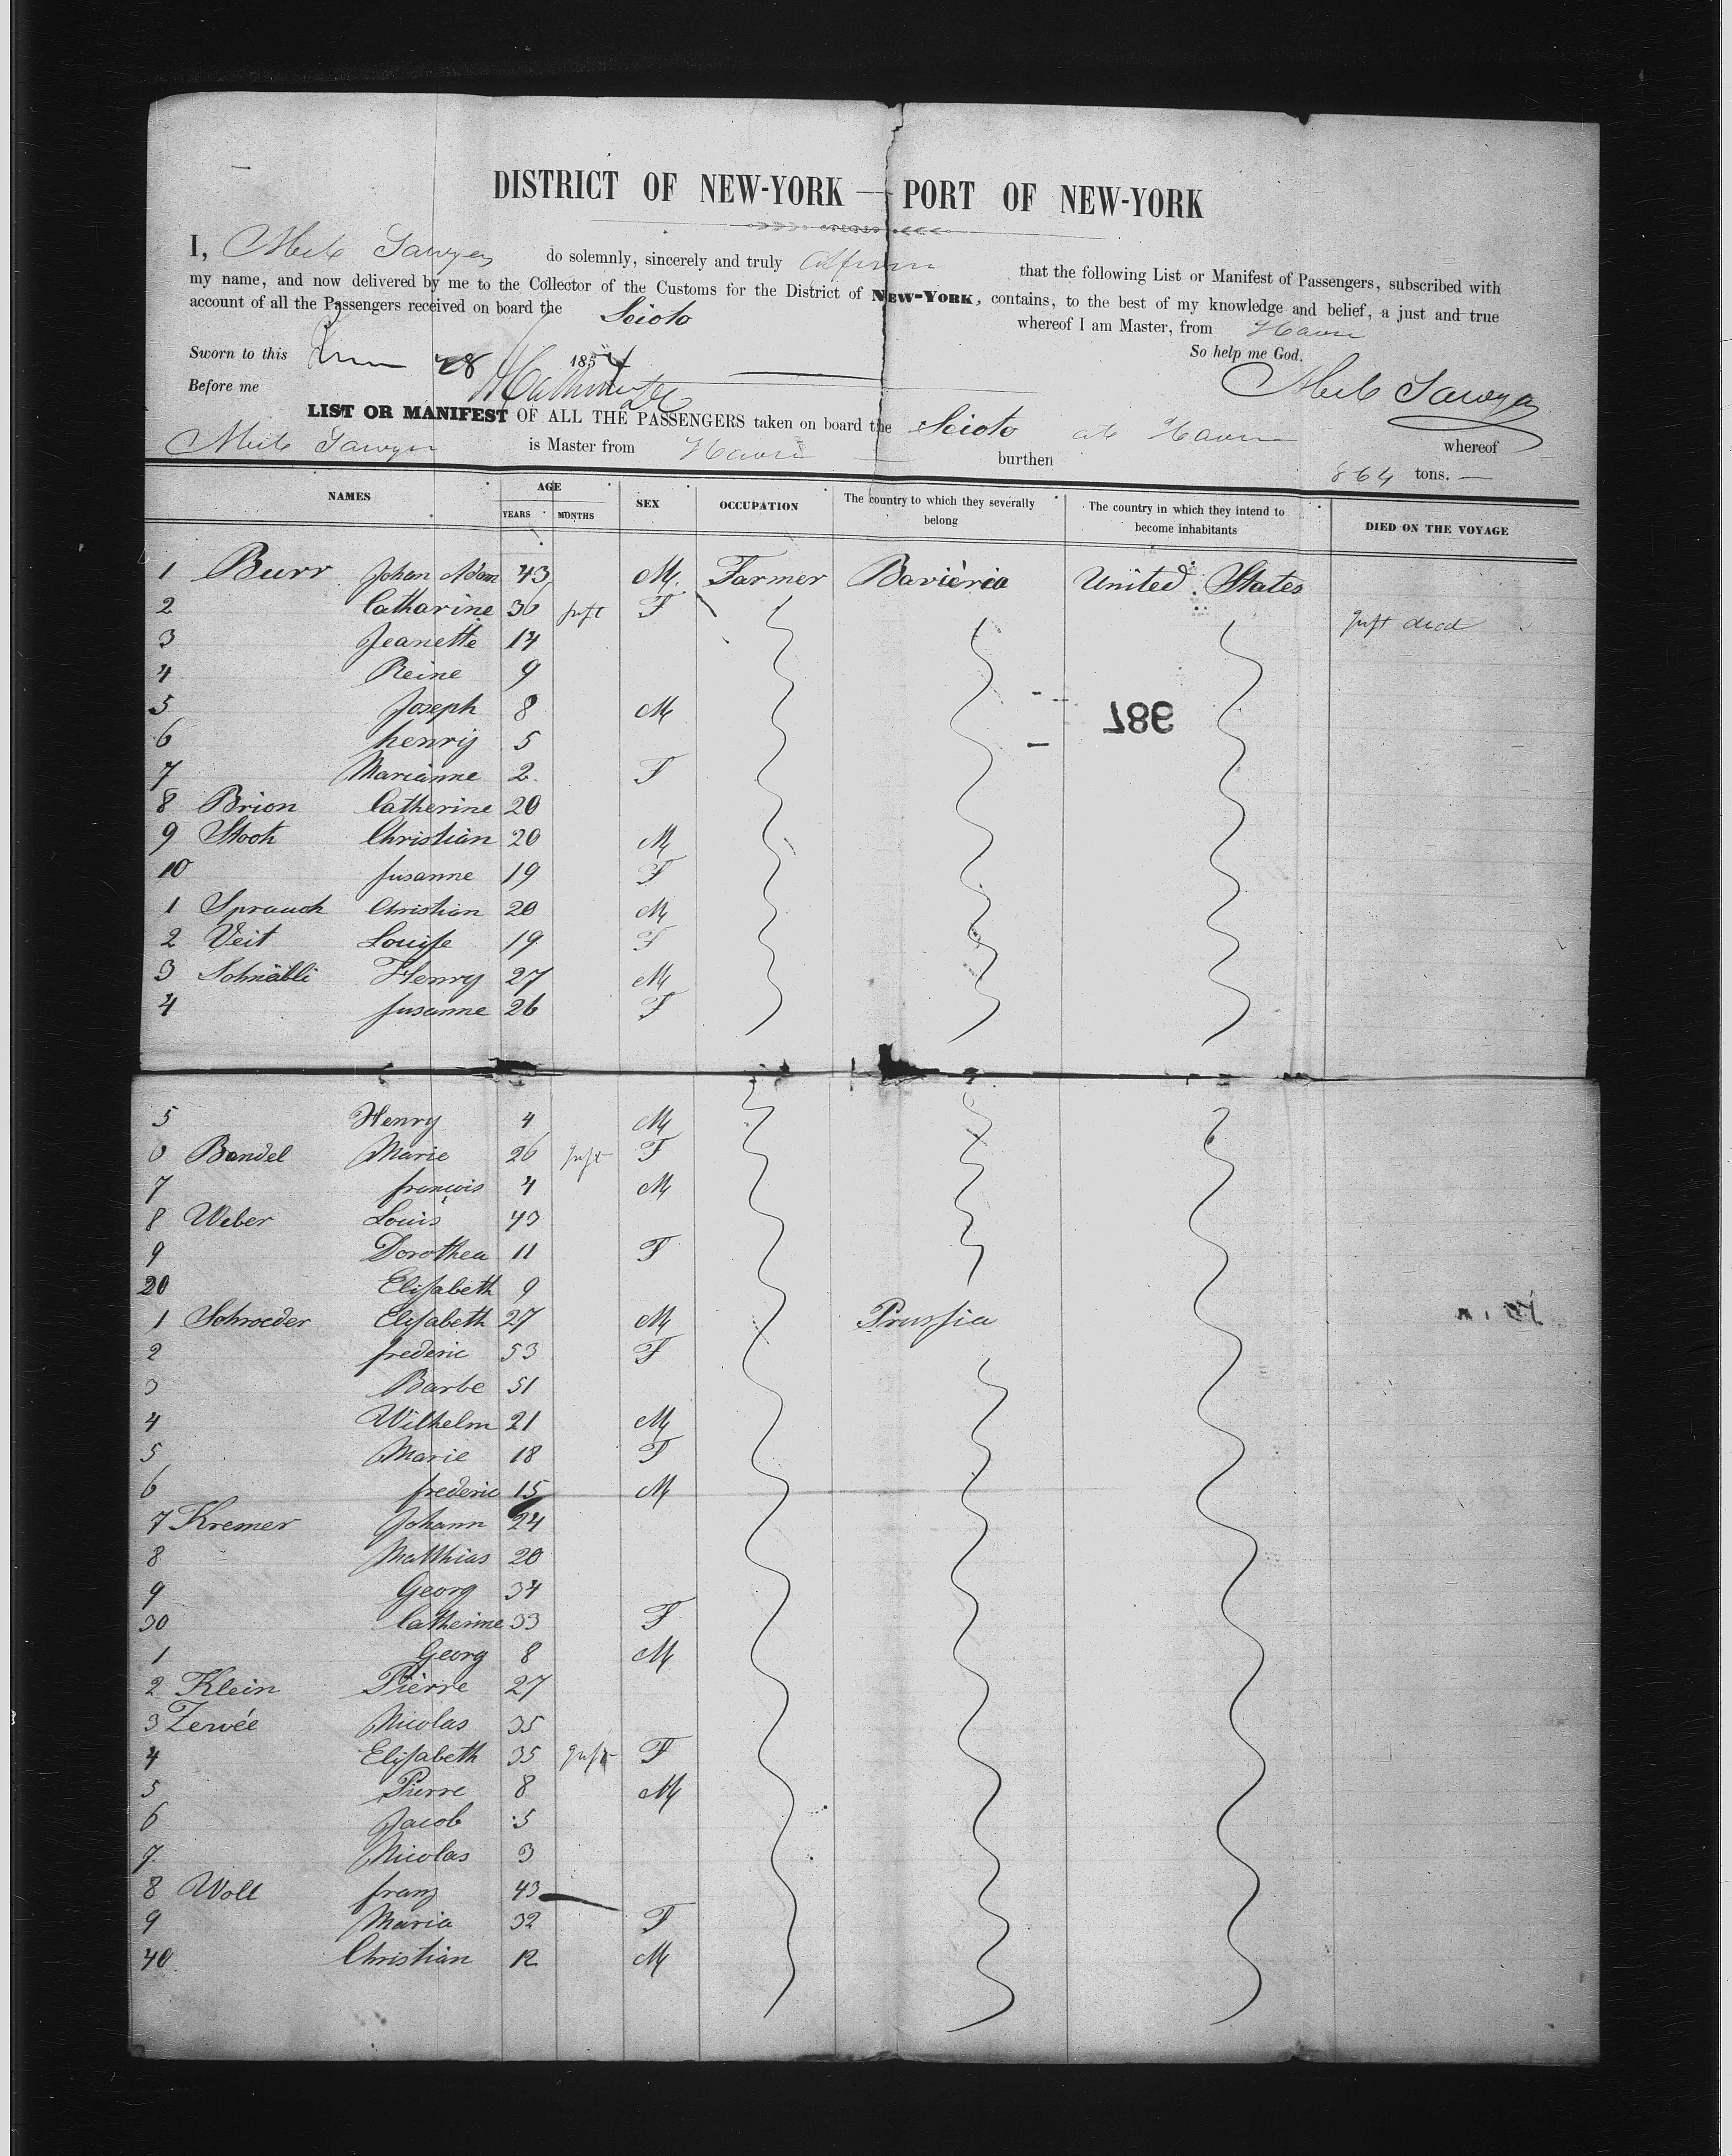 DISTRICT OF NEW-YORK — PORT OF NEW-YORK
I, Sawyer do solemnly, sincerely and truly affirm that the following List or Manifest of Passengers, subscribed with
my name, and now delivered by me to the Collector of the Customs for the District of NEW-YORK, contains, to the best of my knowledge and belief, a just and true
account of all the Passengers received on board the Scioto whereof I am Master, from Havre
Sworn to this June 28 1854 So help me God.
Before me Sawyer
LIST OR MANIFEST OF ALL THE PASSENGERS taken on board the Scioto at Havre whereof
Sawyer is Master from Havre burthen 864 tons.
NAMES AGE YEARS MONTHS SEX OCCUPATION The country to which they severally belong The country in which they intend to become inhabitants DIED ON THE VOYAGE
1 Burr Johan Adam 43 M. Farmer Baviéria United States
2 Catharine 36 Inft F Inft died
3 Jeanette 14
4 Reine 9
5 Joseph 8 M
6 henry 5
7 Marianne 2 F
786
8 Brion Catherine 20
9 Stook Christian 20 M
10 susanne 19 F
1 Sprauch Christian 20 M
2 Veit Louise 19 F
3 Schnäbli Henry 27 M
4 susanne 26 F
5 Henry 4 M
6 Bandel Marie 26 Inft F
7 françois 4 M
8 Weber Louis 43
9 Dorothea 11 F
20 Elisabeth 9
1 Schroeder Elisabeth 27 M Prussia
2 frederic 53 F
3 Barbe 51
4 Wilhelm 21 M
5 Marie 18 F
6 frederic 15 M
7 Kremer Johann 24
8 Matthias 20
9 Georg 34
30 Catherine 33 F
1 Georg 8 M
2 Klein Pierre 27
3 Zervée Nicolas 35
4 Elisabeth 35 Inft F
5 Pierre 8 M
6 Jacob 5
7 Nicolas 3
8 Woll franz 43
9 Maria 32 F
40 Christian 12 M